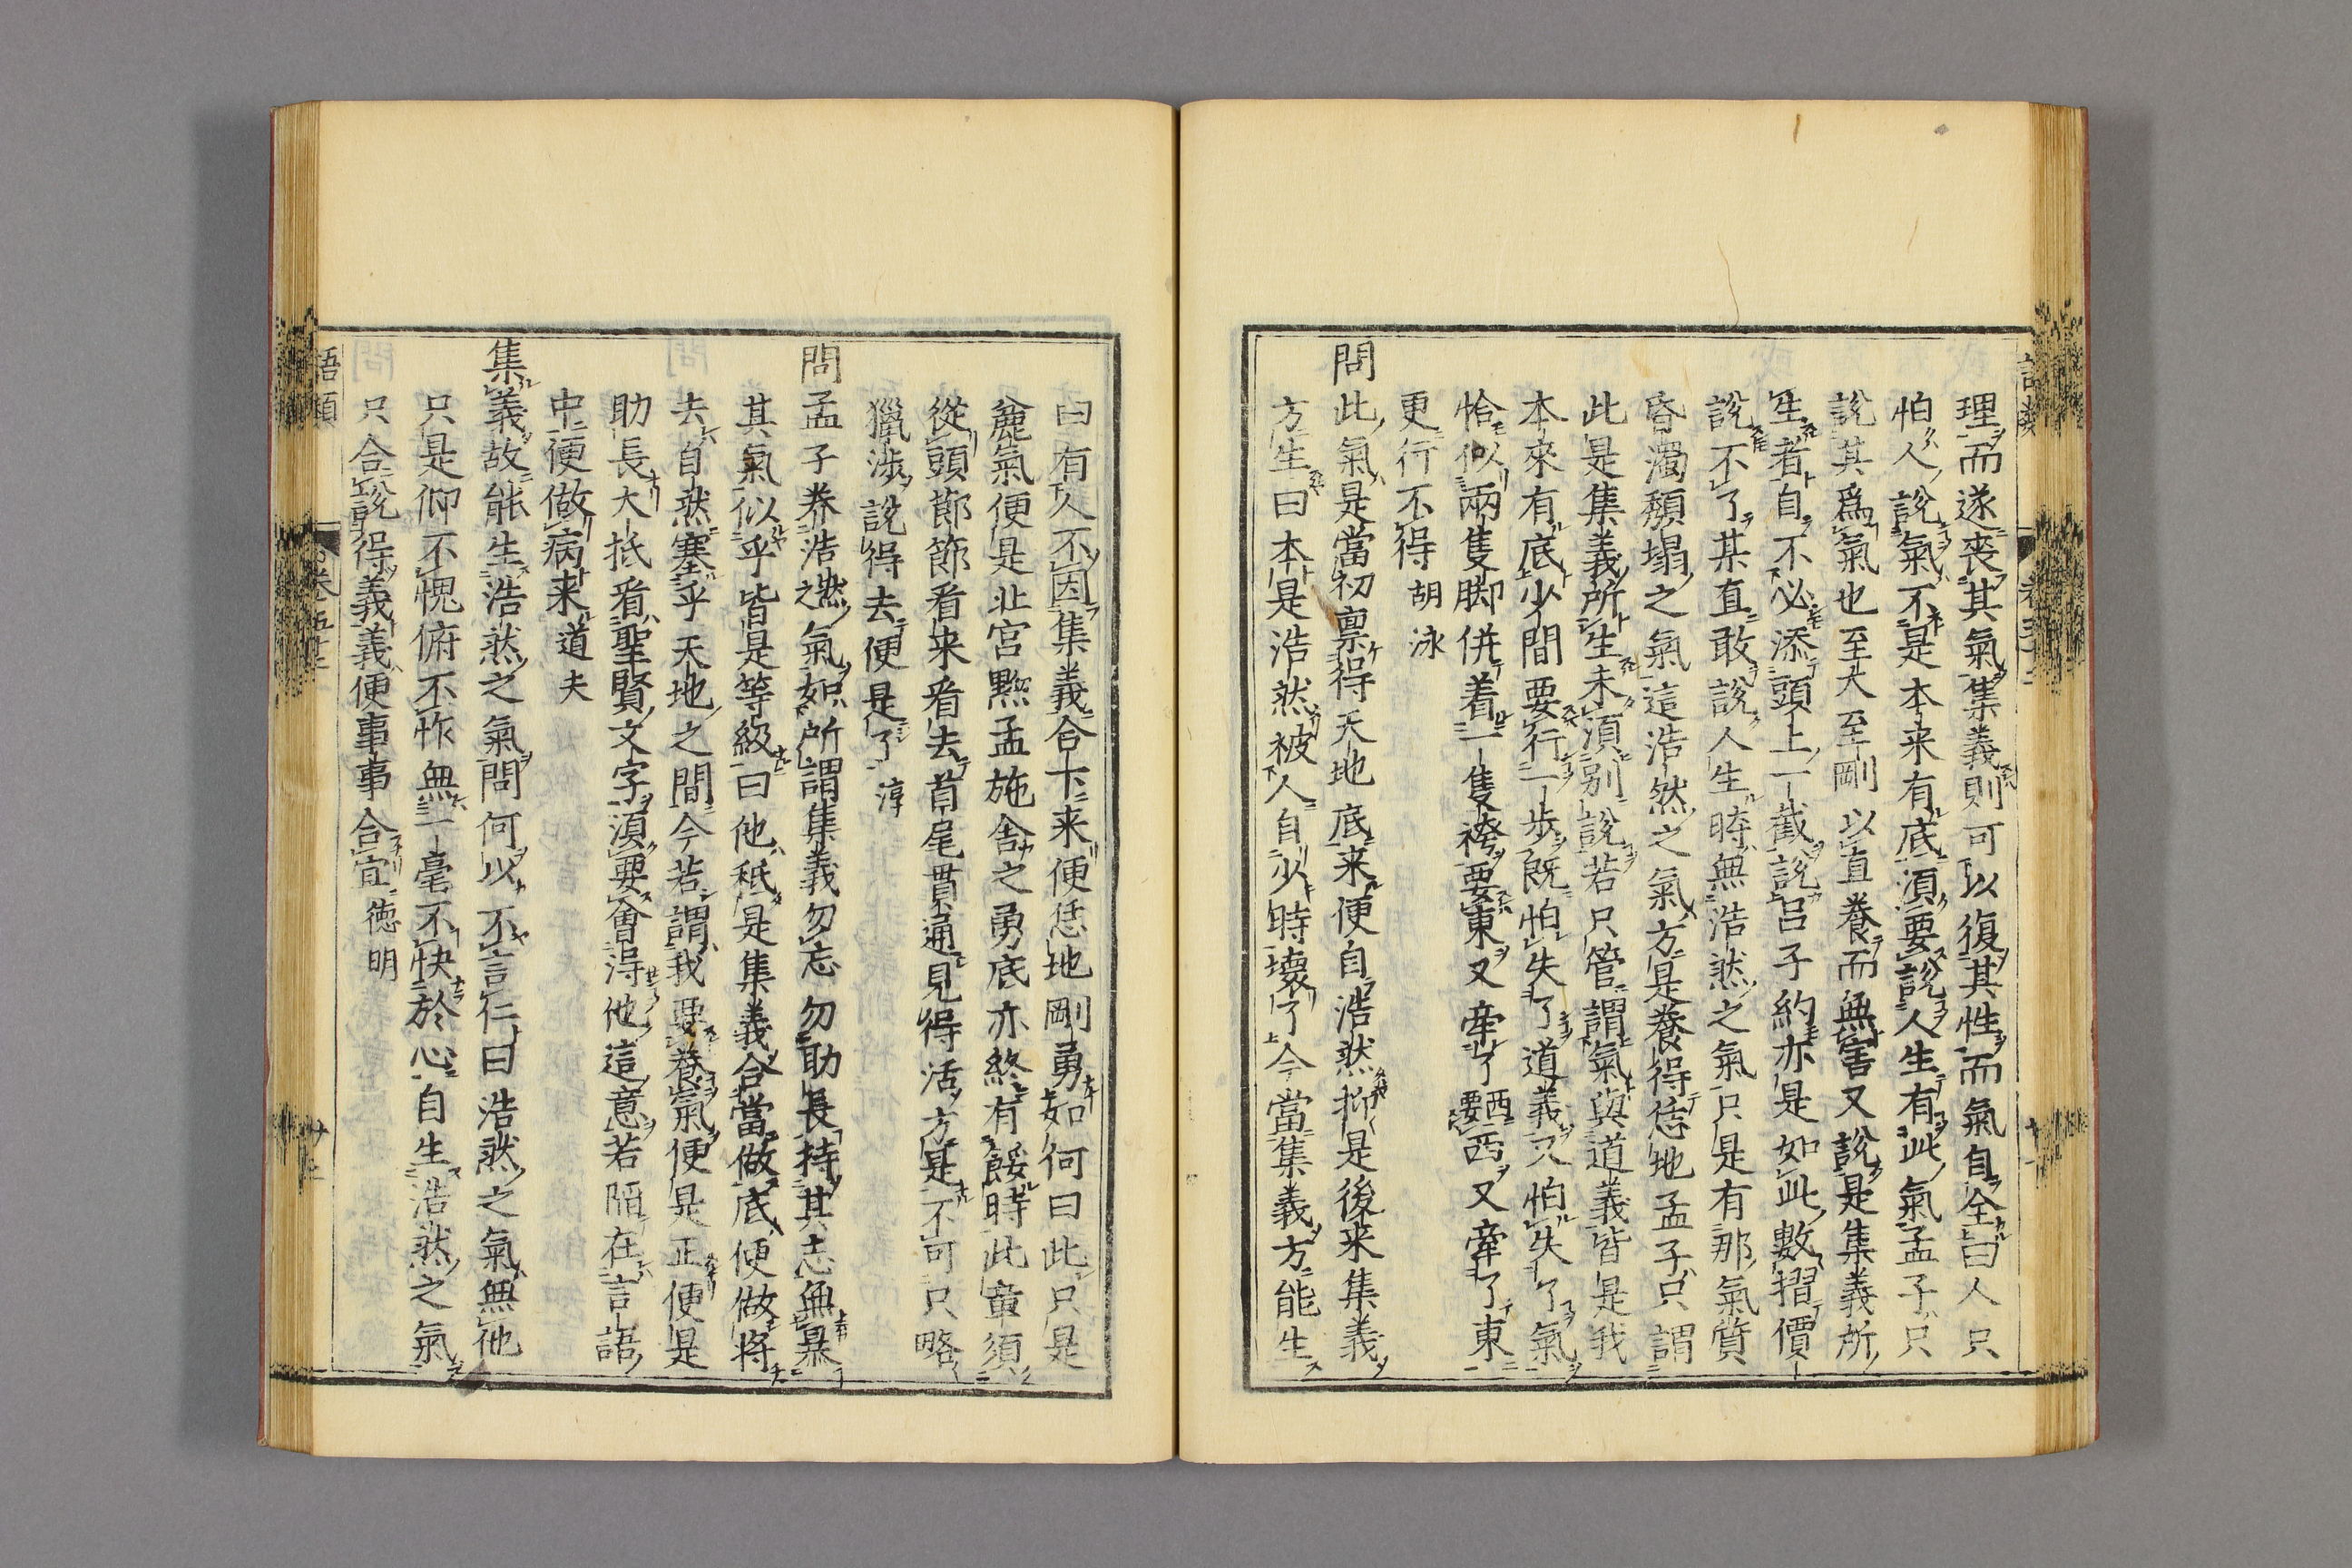 理而遂喪其氣集義則可以復其性而氣自全曰人只
怕人說氣不是本来有底須要說人生有此氣孟子只
說其爲氣也至大至剛以直養而無害又說是集義所
生者自不必添頭上一截說呂子約亦是如此數摺價
說不了某直敢說人生時無浩然之氣只是有那氣質
昏濁頹塌之氣這浩然之氣方是養得恁地孟子只謂
此是集義所生未須別說若只管謂氣與道義皆是我
本來有底少間要行一步既怕失了道義又怕失了氣
恰似兩隻脚併着一隻袴要東又牽了西要西又牽了東
更行不得 胡泳
問此氣是當初禀得天地底来便自浩然抑是後来集義
方生曰本是浩然被人自少時壞了今當集義方能生
曰有人不因集義合下来便恁地剛勇如何曰此只是
麄氣便是北宮黝孟施舍之勇底亦終有餒時此章須
從頭節節看来看去首尾貫通見得活方是不可只略
獵渉說得去便是了 淳
問孟子養浩然之氣如所謂集義勿忘勿助長持其志無暴
其氣似乎皆是等級曰他秖是集義合當做底便做將
去自然塞乎天地之間今若謂我要養氣便是正便是
助長大抵看聖賢文字須要會得他這意若陷在言語
中便做病来 道夫
集義故能生浩然之氣問何以不言仁曰浩然之氣無他
只是仰不愧俯不怍無一毫不快於心自生浩然之氣
只合說得義義便事事合宜 德明
語類
卷五十二